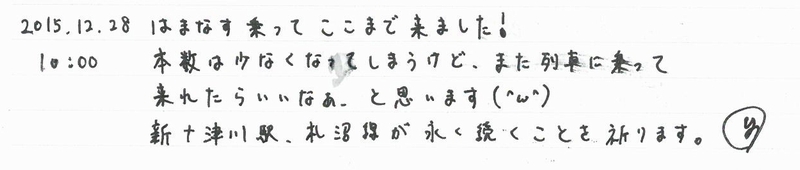 2015.12.28 はまなす乗って ここまで来ました!
10:00 本数は少なくなってしまうけど、また列車に乗って
来れたらいいなぁ、と思います(^ω^)
新十津川駅、札沼線が永く続くことを祈ります。